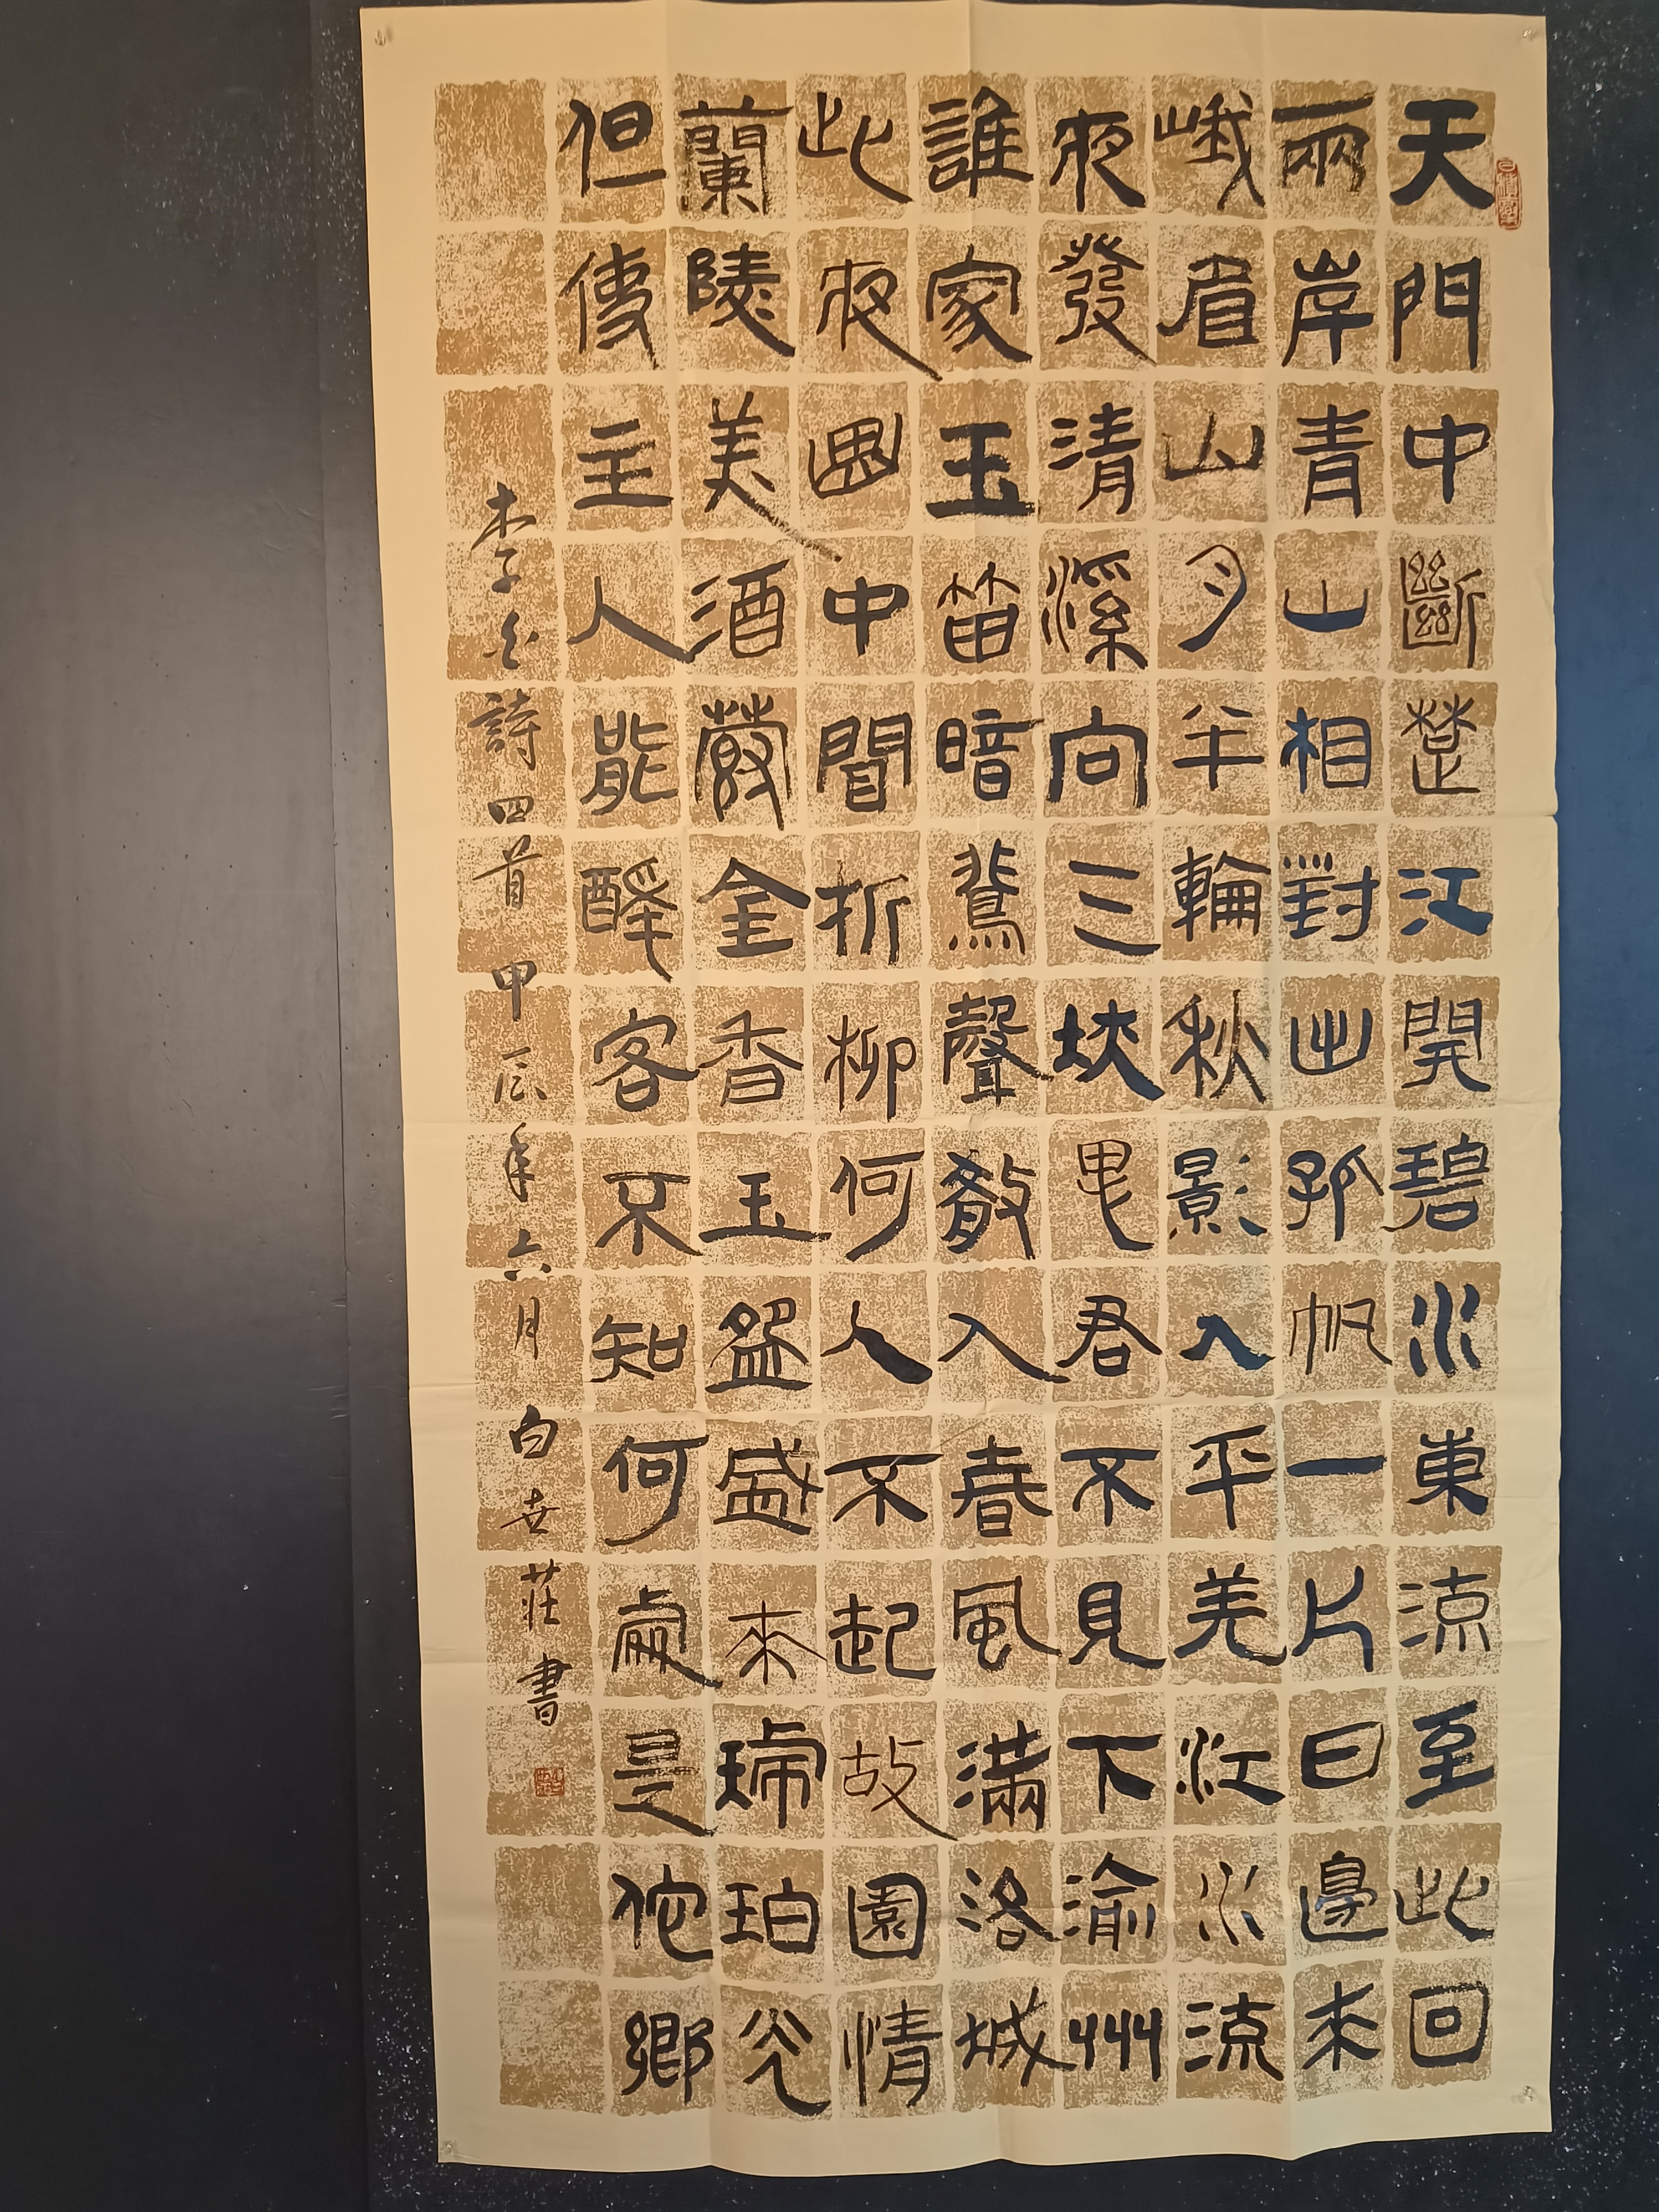 天門中斷楚江開碧水東流至此回
兩岸青山相對出孤帆一片日邊來
峨眉山月半輪秋影入平羌江水流
夜發清溪向三峽思君不見下渝州
誰家玉笛暗飛聲散入春風滿洛城
此夜曲中聞折柳何人不起故園情
蘭陵美酒鬱金香玉盌盛來琥珀光
但使主人能醉客不知何處是佗鄉
李白詩四首甲辰年六月白世莊書